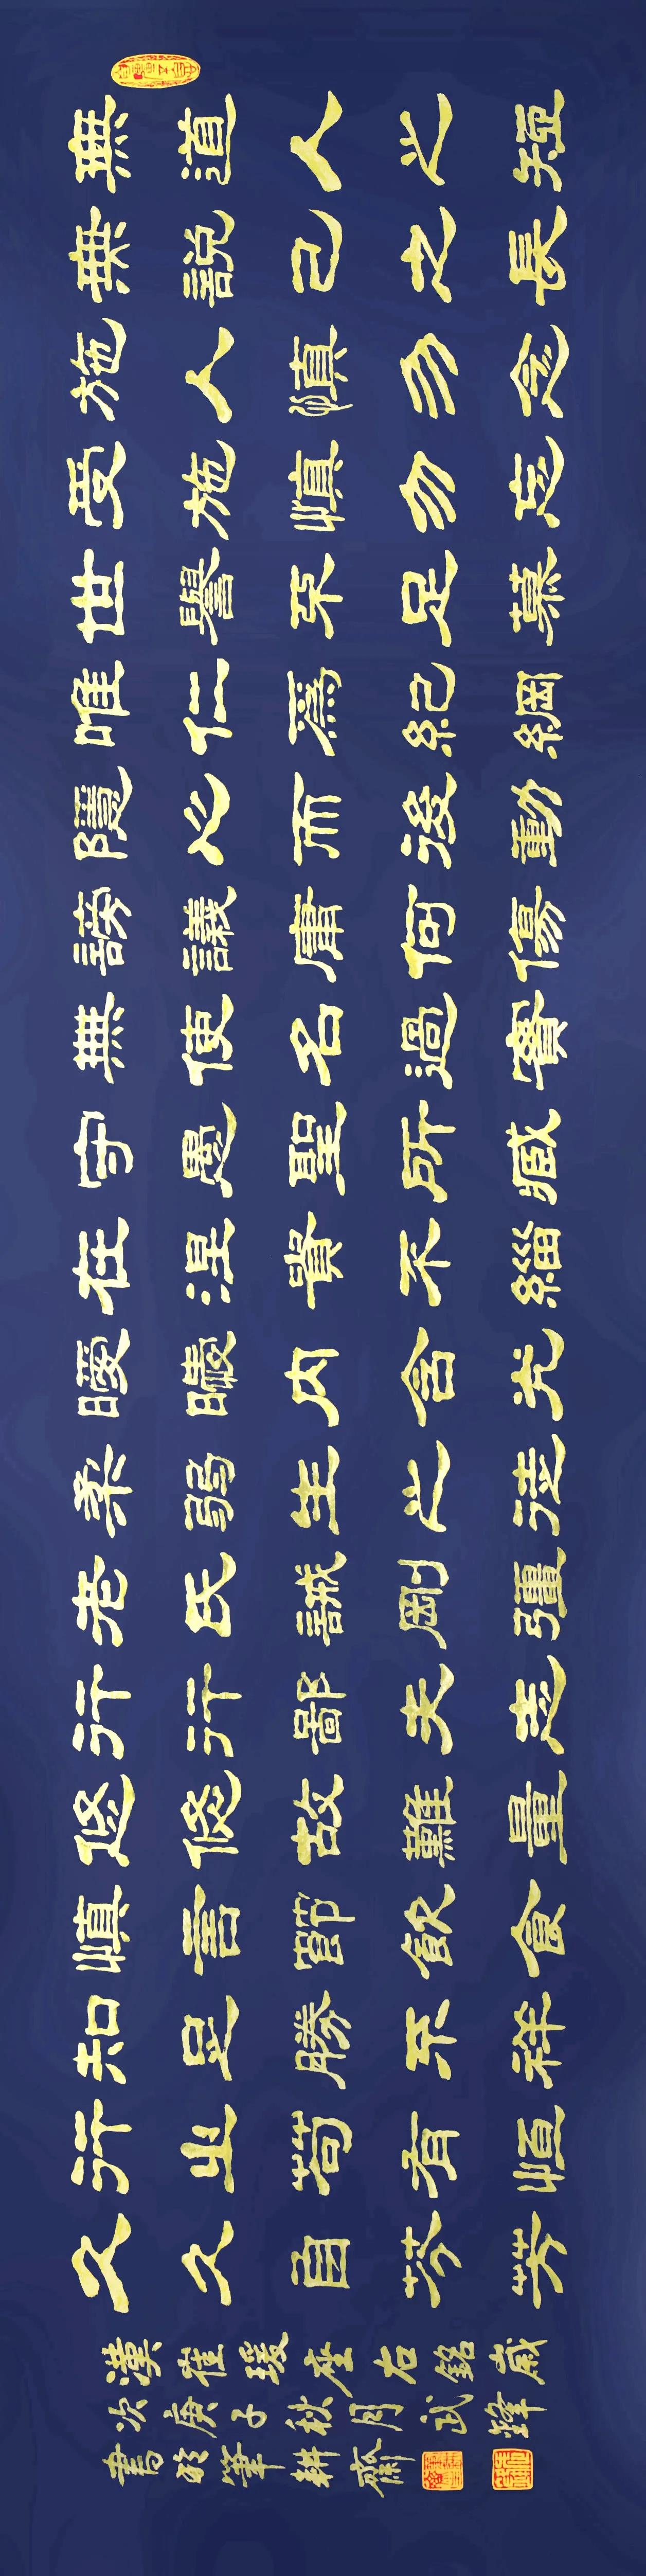 無道人之短
無説己之長
施人慎勿念
受施慎勿忘
世譽不足慕
唯仁為紀綱
隱心而後動
謗議庸何傷
無使名過實
守愚聖所臧
在涅貴不緇
曖曖内含光
柔弱生之徒
老氏誡剛彊
行行鄙夫志
悠悠故難量
慎言節飲食
知足勝不祥
行之苟有恒
久久自芬芳
漢崔瑗座右銘歲
次庚子秋月武鋒
書於筆耕齋